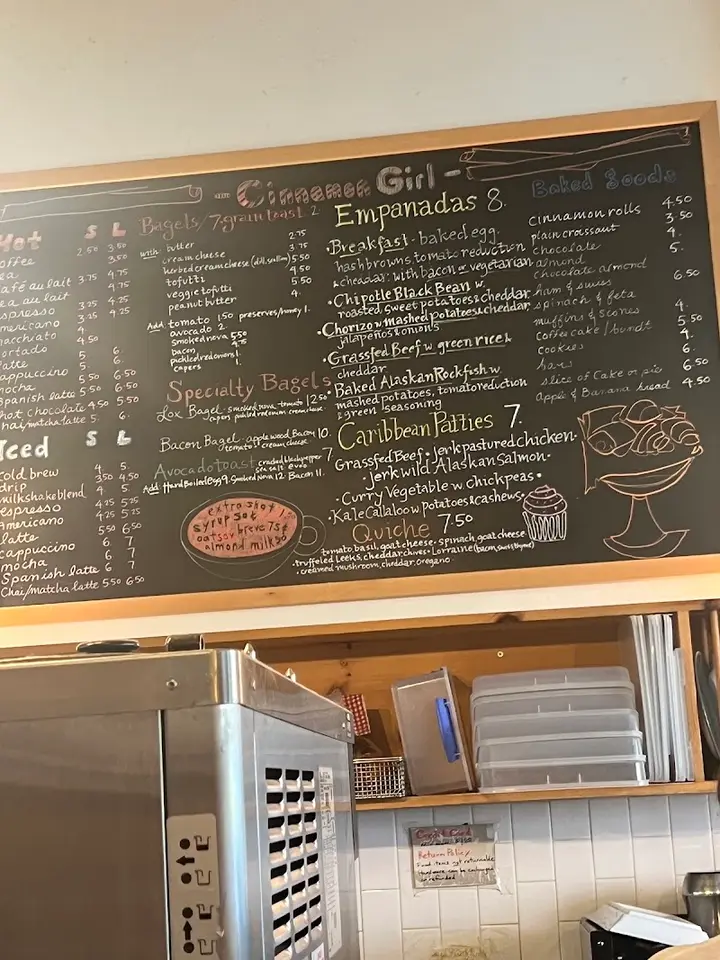 Cinnamon Girl -
Hot S L
offee 2.50 3.50
ea 3.50
café au lait 3.75 4.75
ea au lait 4.75
spresso 3.25 4.25
mericano 3.25 4.25
macchiato 4.
ortado 4.50
latte 5. 6.
cappuccino 5. 6.
mocha 5.50 6.50
Spanish latte 5.50 6.50
hot chocolate 4.50 5.50
chai/matcha latte 5. 6.
Iced S L
Cold brew 4. 5.
drip 3.50 4.50
milkshake blend 4. 5.
espresso 4.25 5.25
americano 4.25 5.25
latte 5.50 6.50
cappuccino 6 7
mocha 6 7
Spanish latte 6 7
Chai/matcha latte 5.50 6.50
Bagels/7-grain toast 2.
with: butter 2.75
cream cheese 3.75
herbed cream cheese (dill, scallion) 5.50
tofutti 4.50
veggie tofutti 5.50
peanut butter 4.
Add: tomato 1.50 preserves/honey 1.
avocado 2
smoked nova 5.50
bacon 4.
pickled red onions 1.
capers 1.
Specialty Bagels
Lox Bagel - smoked nova, tomato 12.50
capers pickled red onion cream cheese
Bacon Bagel - applewood Bacon 10.
tomato cream cheese
Avocado toast cracked black pepper 7.
sea salt evoo
Add Hard Boiled egg 9. Smoked Nova 12. Bacon 11.
extra shot 1.
syrup 50¢
oat soy breve 75¢
almond milk 50
Empanadas 8.
• Breakfast - baked egg,
hashbrowns, tomato reduction
& cheddar: with bacon or vegetarian
• Chipotle Black Bean w.
roasted sweet potatoes & cheddar
• Chorizo w. mashed potatoes & cheddar,
jalapeños & onions
• Grassfed Beef w. green rice &
cheddar
• Baked Alaskan Rockfish w.
mashed potatoes, tomato reduction
& green seasoning
Caribbean Patties 7.
Grassfed Beef • Jerk pastured chicken •
• Jerk wild Alaskan Salmon •
• Curry Vegetable w chickpeas •
• Kale Callaloo w. potatoes & cashews •
Quiche 7.50
tomato, basil, goat cheese • spinach, goat cheese
• truffled leeks, cheddar, chives • Lorraine (bacon, swiss, thyme)
• creamed mushroom, cheddar, oregano
Baked Goods
cinnamon rolls 4.50
plain croissant 3.50
chocolate 4.
almond 5.
chocolate almond
ham & swiss 6.50
spinach & feta
muffins & scones 4.
coffee cake / bundt 5.50
cookies 4.
bars 6.
slice of Cake or pie 6.50
apple & Banana bread 4.50
Return Policy
Food items not returnable